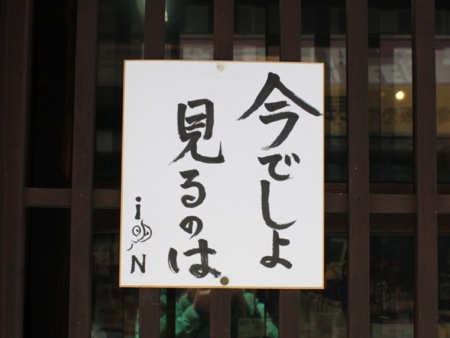 今でしょ
見るのは
i
N